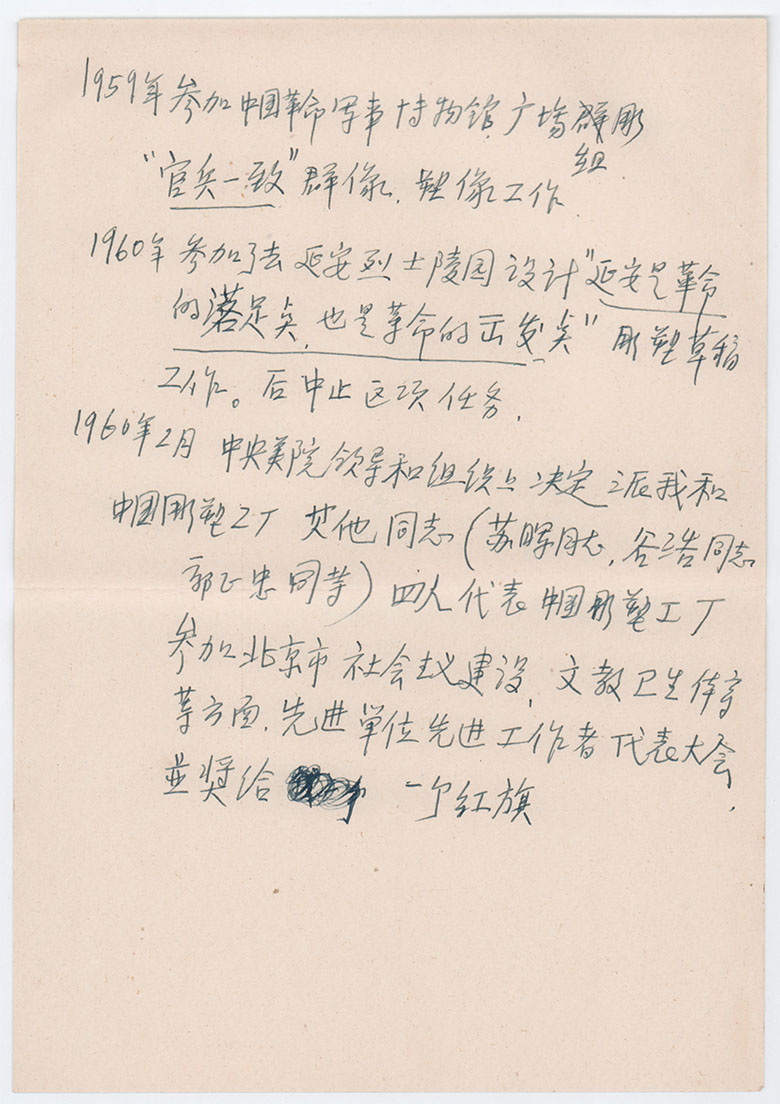 1959年参加中国革命军事博物馆广场群彫组
"官兵一致"群像.塑像工作
1960年参加了去延安烈士陵园设计"延安是革命
的落足点,也是革命的出发点"彫塑草稿
工作。后中止这项任务.
1960年2月 中央美院领导和组织上决定派我和
中国彫塑工厂其他同志(苏晖同志,谷浩同志
郭正忠同等)四人代表中国彫塑工厂
参加北京市社会主义建设,文教卫生体育
等方面.先进單位先进工作者代表大会.
並奖给 一个红旗